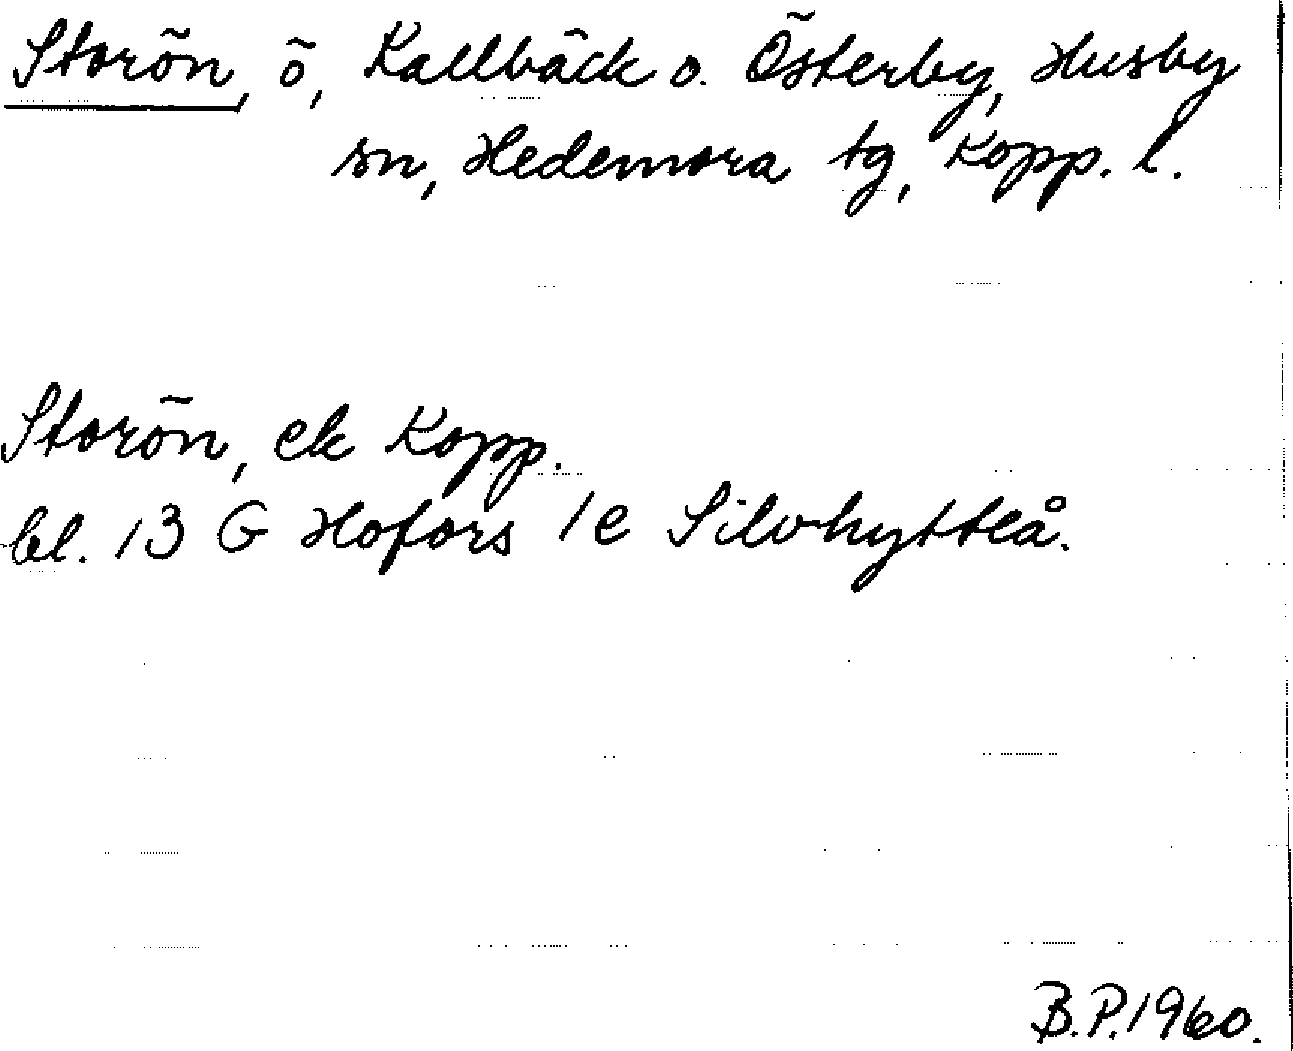 Storön, ö, Kallbäck o. Österby, Husby
sn, Hedemora tg, Kopp. l.
Storön, ek Kopp.
bl. 13 G Hofors 1e Silvhytteå.
B.P. 1960.